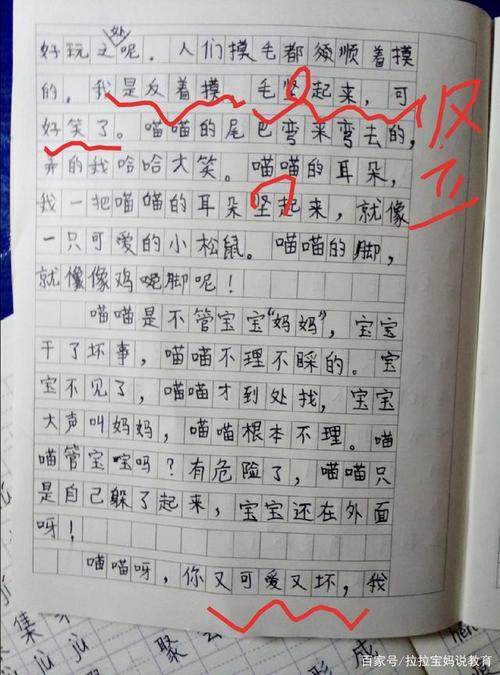 处
好玩之呢。人们摸毛都须顺着摸
的,我是反着摸 毛坚起来,可
好笑了。喵喵的尾巴弯来弯去的,
弄的我哈哈大笑。喵喵的耳朵,
我一把喵喵的耳朵坚起来,就像
一只可爱的小松鼠。喵喵的脚,
就像像鸡脚呢!
喵喵是不管宝宝“妈妈”,宝宝
干了坏事,喵喵不理不睬的。宝
宝不见了,喵喵才到处找,宝宝
大声叫妈妈,喵喵根本不理。喵
喵管宝宝吗?有危险了,喵喵只
是自己躲了起来,宝宝还在外面
呀!
喵喵呀,你又可爱又坏,我
集
jù jù
聚
形成
百家号/拉拉宝妈说教育